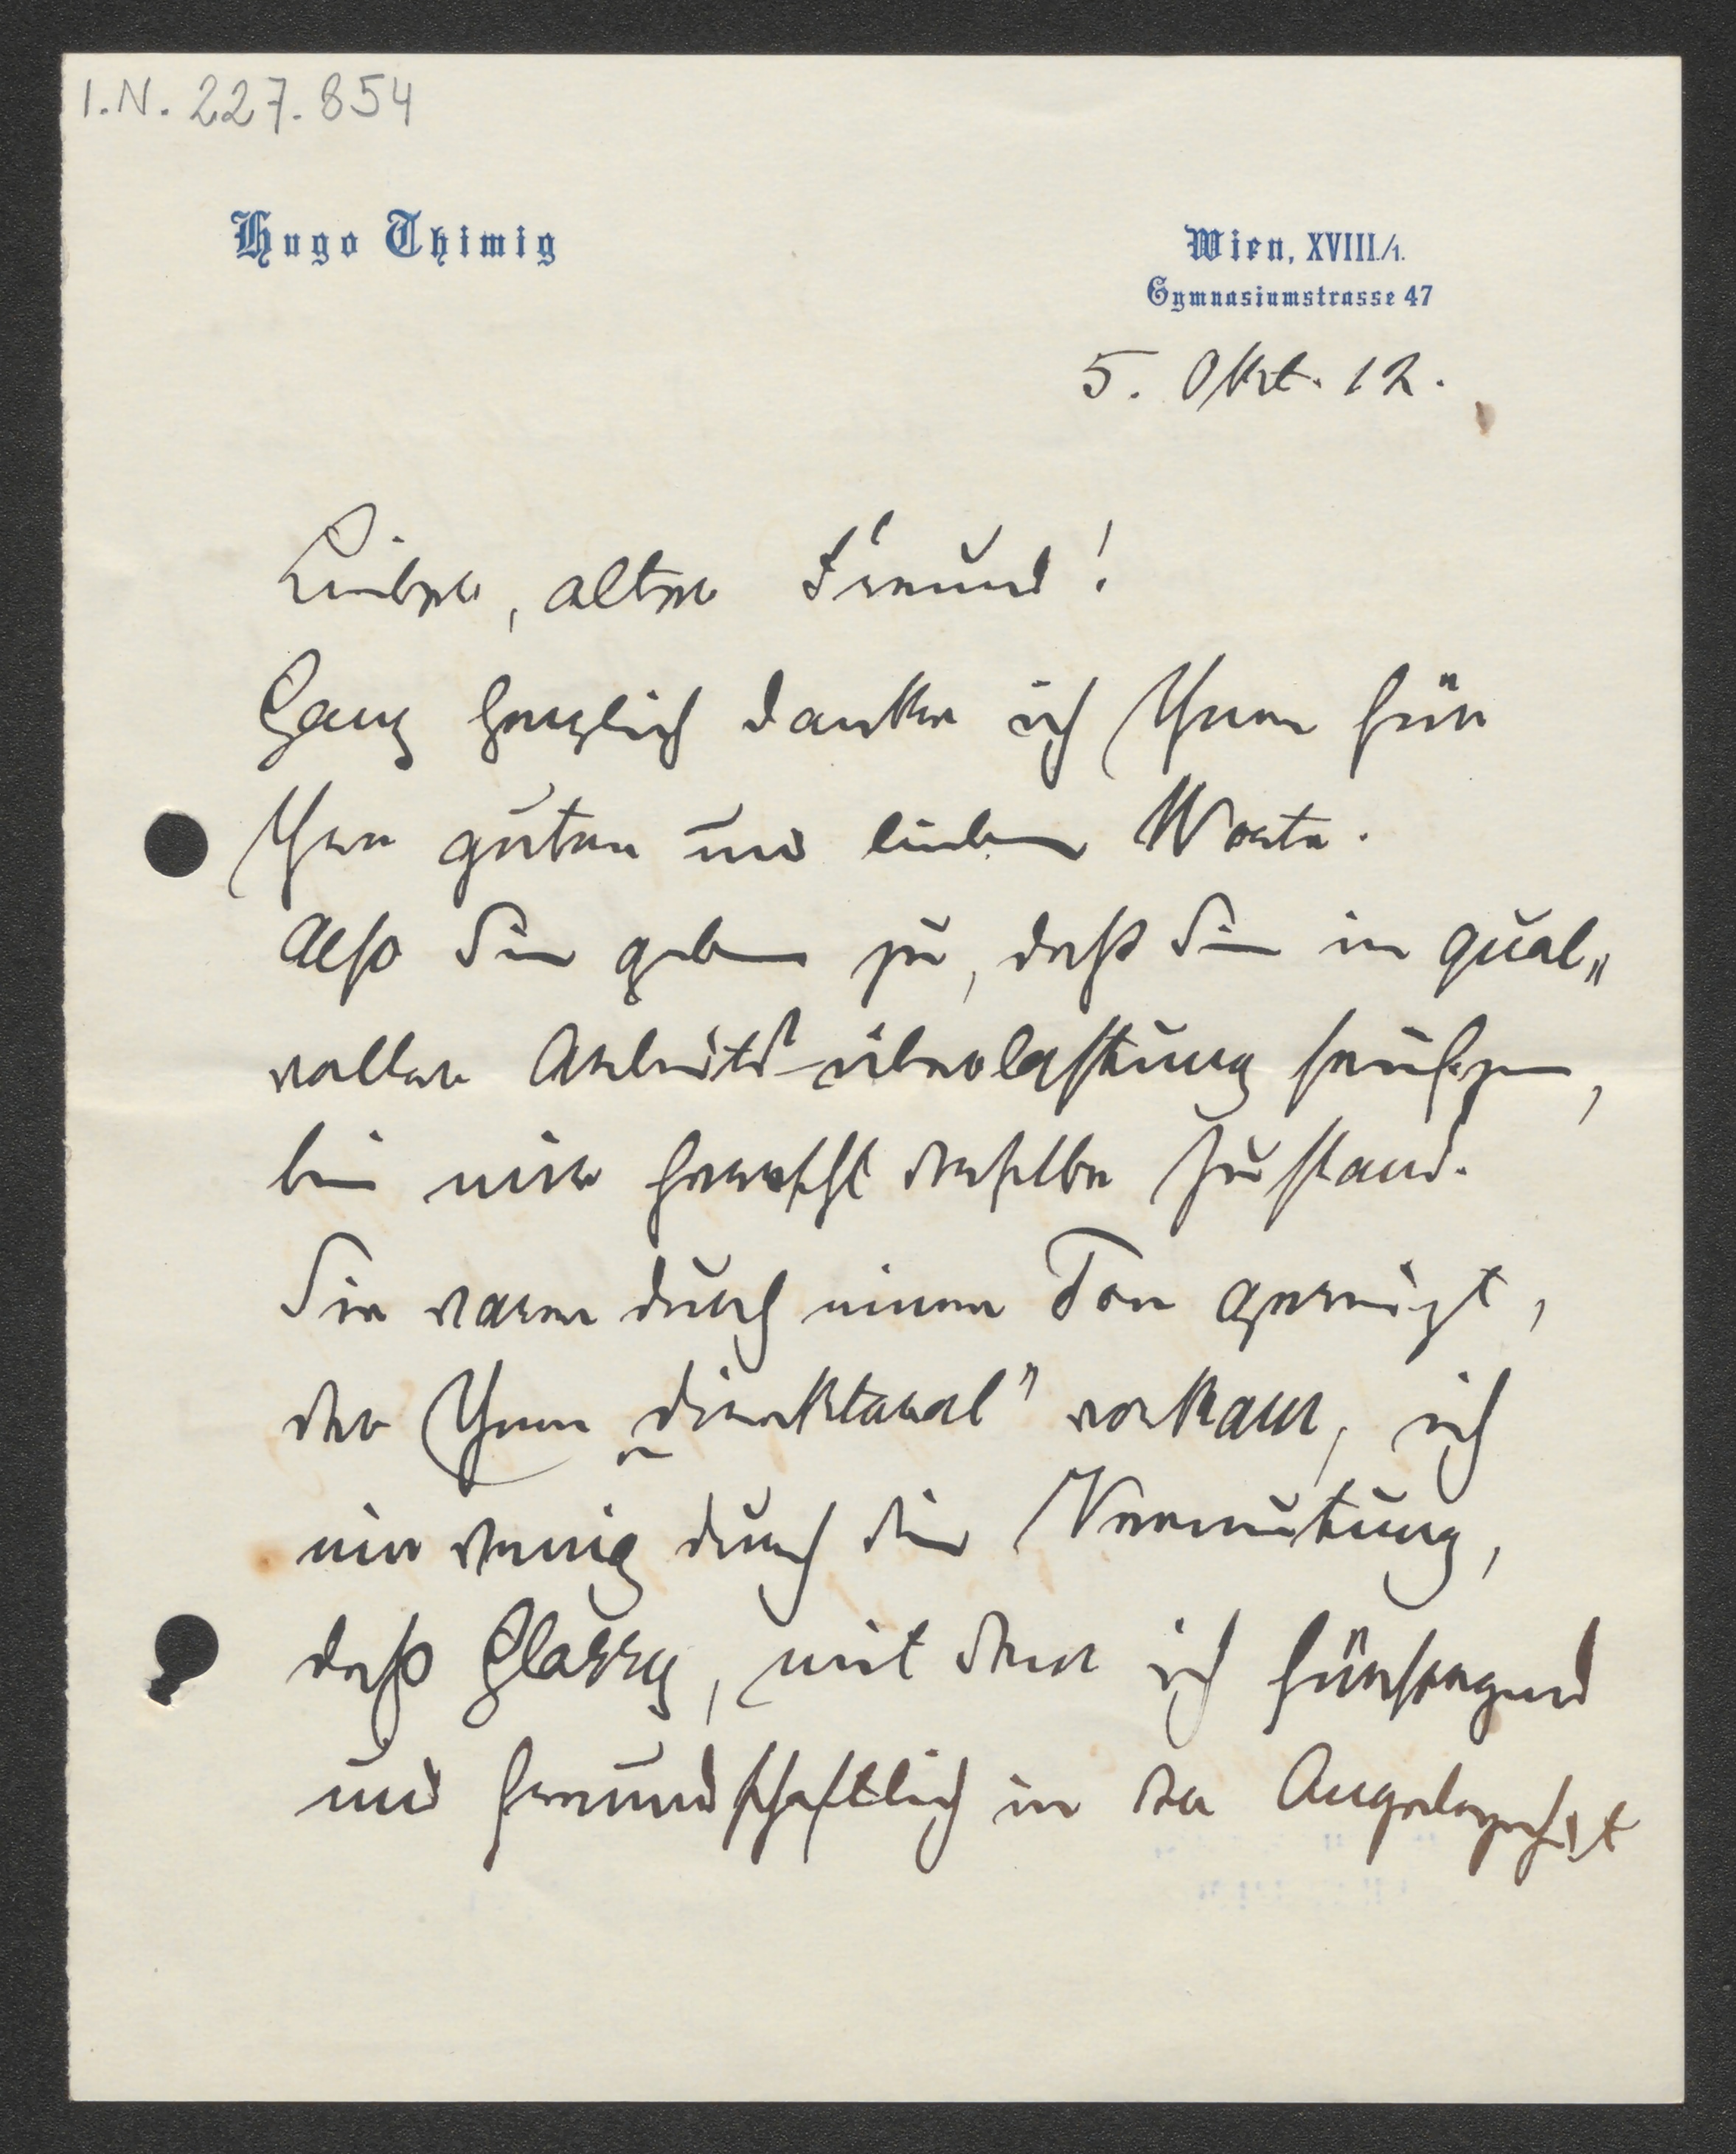 I.N. 227.854
Hugo Thimig
Wien, XVIII./1.
Gymnasiumstrasse 47
5. Okt. 12.
Lieber, alter Freund!
Ganz herzlich danke ich Ihnen für
Ihre guten und lieben Worte.
Also Sie geben zu, daß Sie in qual„
voller Arbeits-überlastung seufzen,
bei mir herrscht derselbe Zustand.
Sie waren durch einen Ton gereizt,
der Ihnen „direktoral" vorkam, ich
ein wenig durch die Vermutung,
daß Glossy, mit dem ich fürsorgend
und freundschaftlich in der Angelegenheit